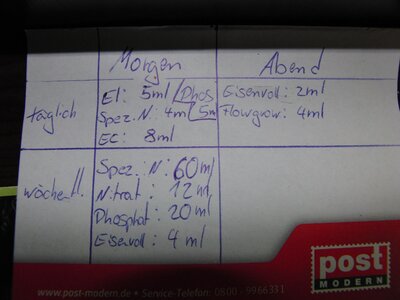 Morgen Abend
täglich
EI: 5ml /Phos
Spez. N: 4ml 5m
EC: 8ml
Eisenvoll: 2ml
Flowgrow: 4ml
wöchentl.
Spez. N: 60ml
Nitrat: 12ml
Phosphat: 20ml
Eisenvoll: 4ml
post
MODERN
www.post-modern.de • Service-Telefon: 0800 - 9966331